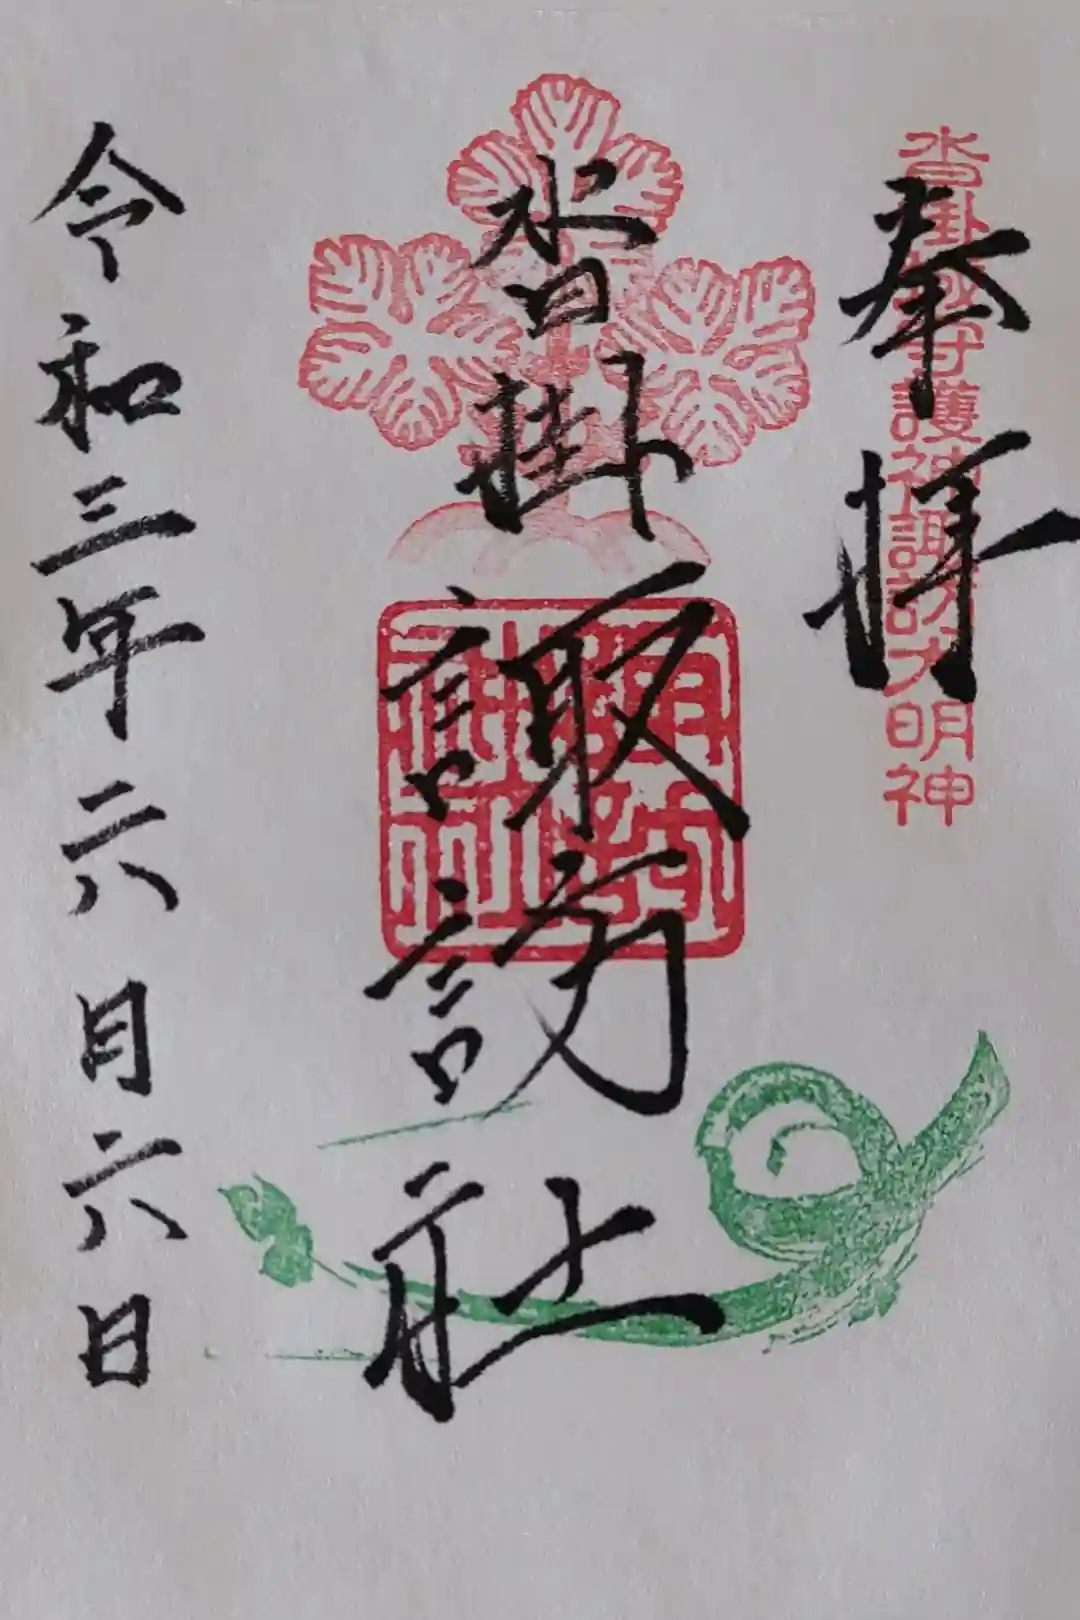 奉拝
沓掛郷守護神諏訪大明神
沓掛諏訪社
令和三年六月六日